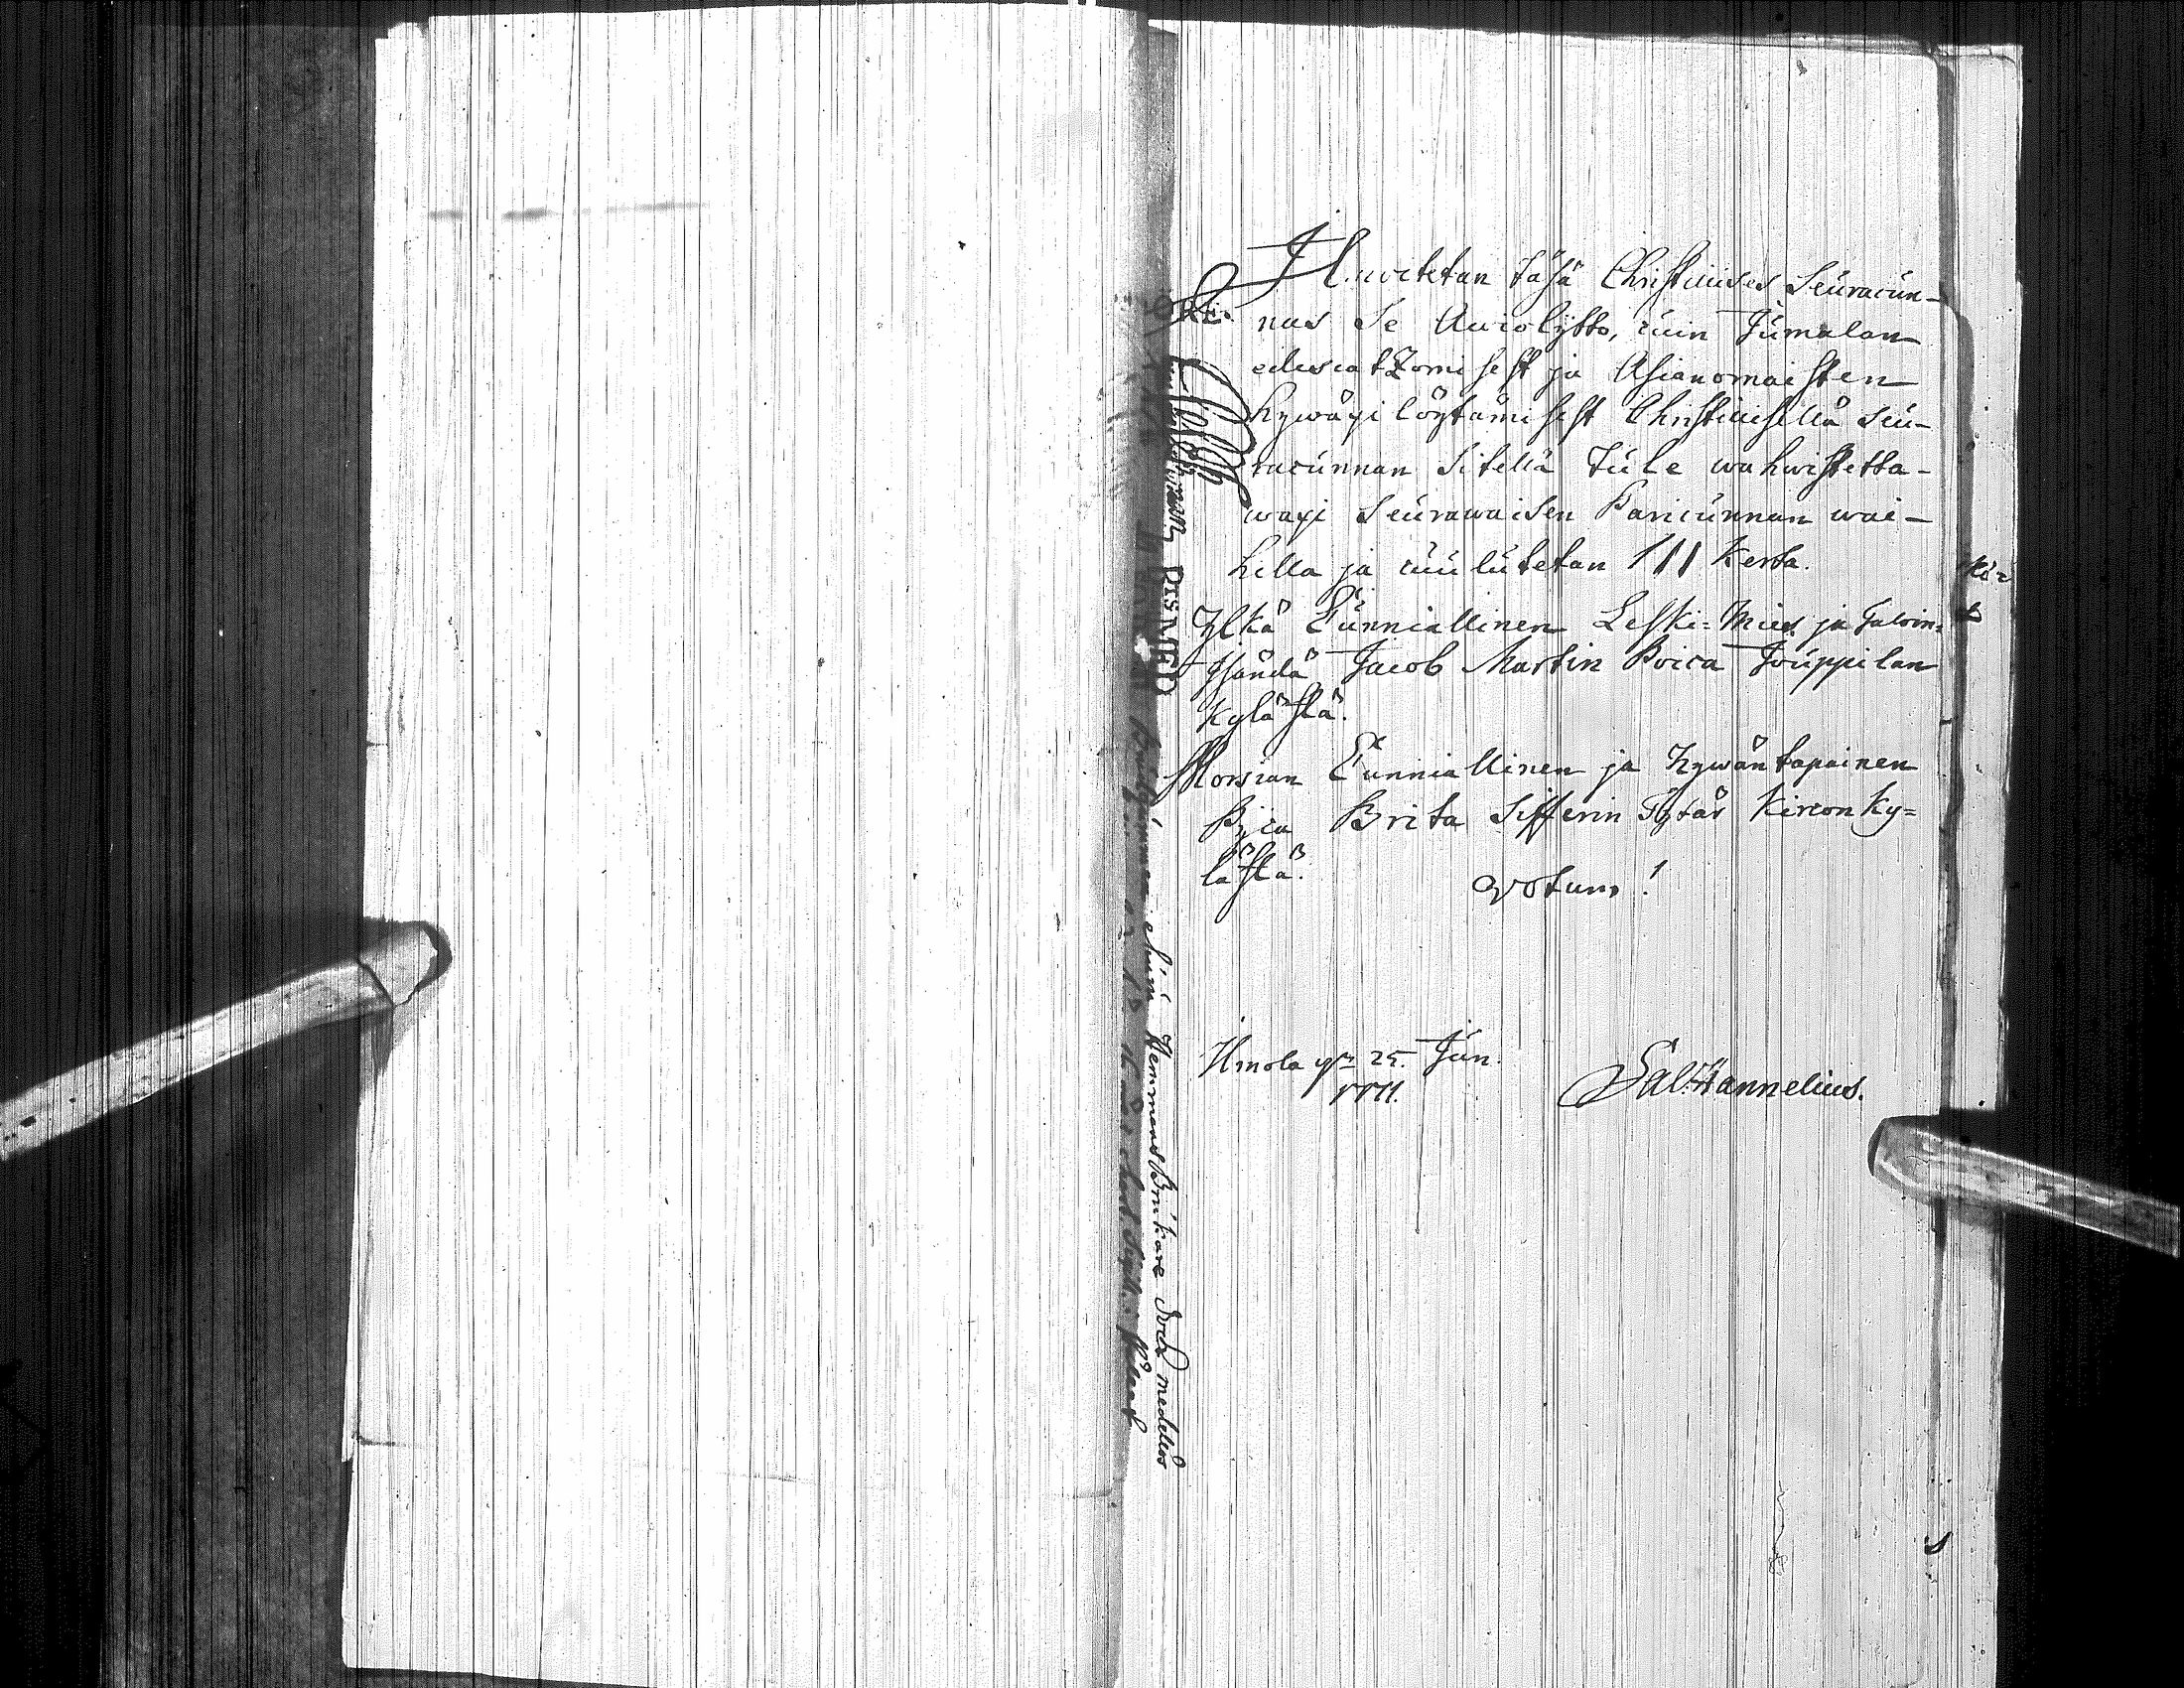 Ilmoitetan täsä Christilisses Seuracun-
nas Se Awiolijtto, cuin Jumalan
edescatZomisest ja Asianomaisten
hywäxi löytämisest Christilisellä Seu-
racunnan Sitellä tule wahwistetta-
waxi Seurawaisen Paricunnan wai-
hella ja cuulutetan 1 1 1 Kerta.
Ylkä Cunniallinen Leski-Mies ja Talon-
Isändä Jacob Martin Poica Jouppilan
Kylästä.
Morsian Cunniallinen ja Hywäntapainen
Pijca Brita Sifferin Tytär Kircon Ky=
lästä.
Votum!
Ilmola 25. Jun.
1771.
Sal: Hannelius.
RE.
DISMED
Hemmans Brukare